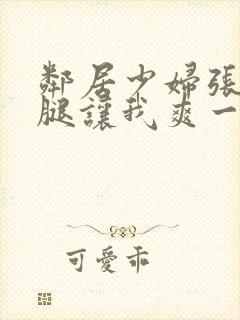 鄰居少婦張
腿讓我爽一
可愛乖